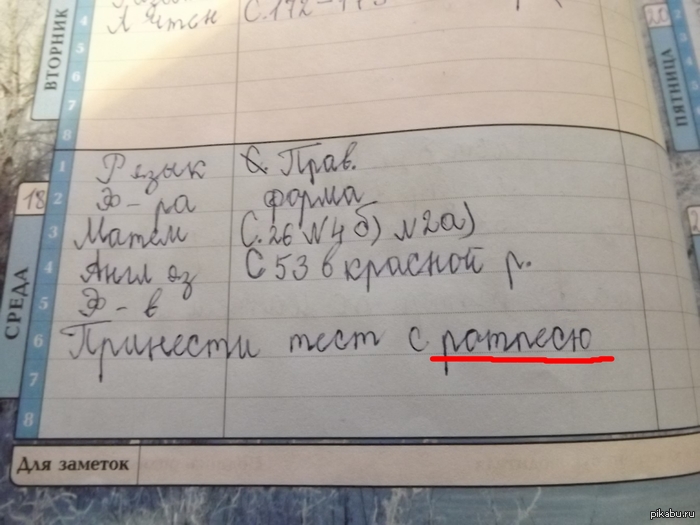 ВТОРНИК
4 Л чтен С. 172-175
5
6
7
8
20
ПЯТНИЦА
2
3
4
5
18
СРЕДА
1 Р язык С. Прав.
2 Ф-ра форма
3 Матем С. 26 №4 б) №2а)
4 Англ яз С 53 в красной р.
5 Ф-в
6 Принести тест с ратпесю
7
8
Для заметок
pikabu.ru